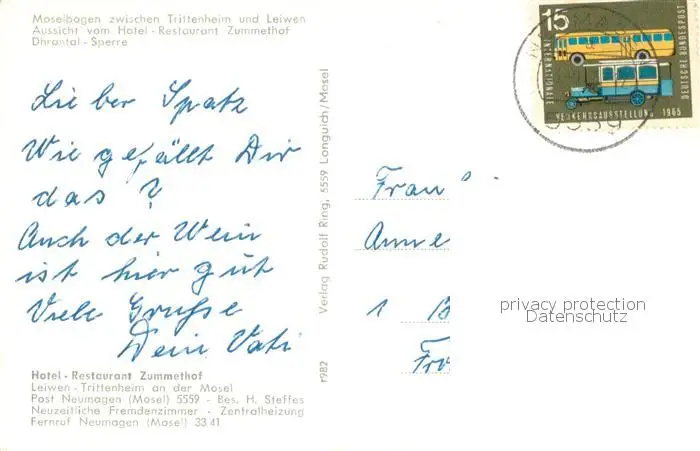 Moselbogen zwischen Trittenheim und Leiwen
Aussicht vom Hotel-Restaurant Zummethof
Dhrontal-Sperre
Lieber Spatz
Wie gefällt Dir
das ?
Auch der Wein
ist hier gut
Viele Grüße
Dein Vati
Hotel-Restaurant Zummethof
Leiwen-Trittenheim an der Mosel
Post Neumagen (Mosel) 5559 - Bes. H. Steffes
Neuzeitliche Fremdenzimmer - Zentralheizung
Fernruf Neumagen (Mosel) 33 41
Verlag Rudolf Ring, 5559 Longuich/Mosel
r982
15
INTERNATIONALE
VERKEHRSAUSSTELLUNG 1965
DEUTSCHE BUNDESPOST
5559
Frau
Anne
1 B
Fro
privacy protection
Datenschutz